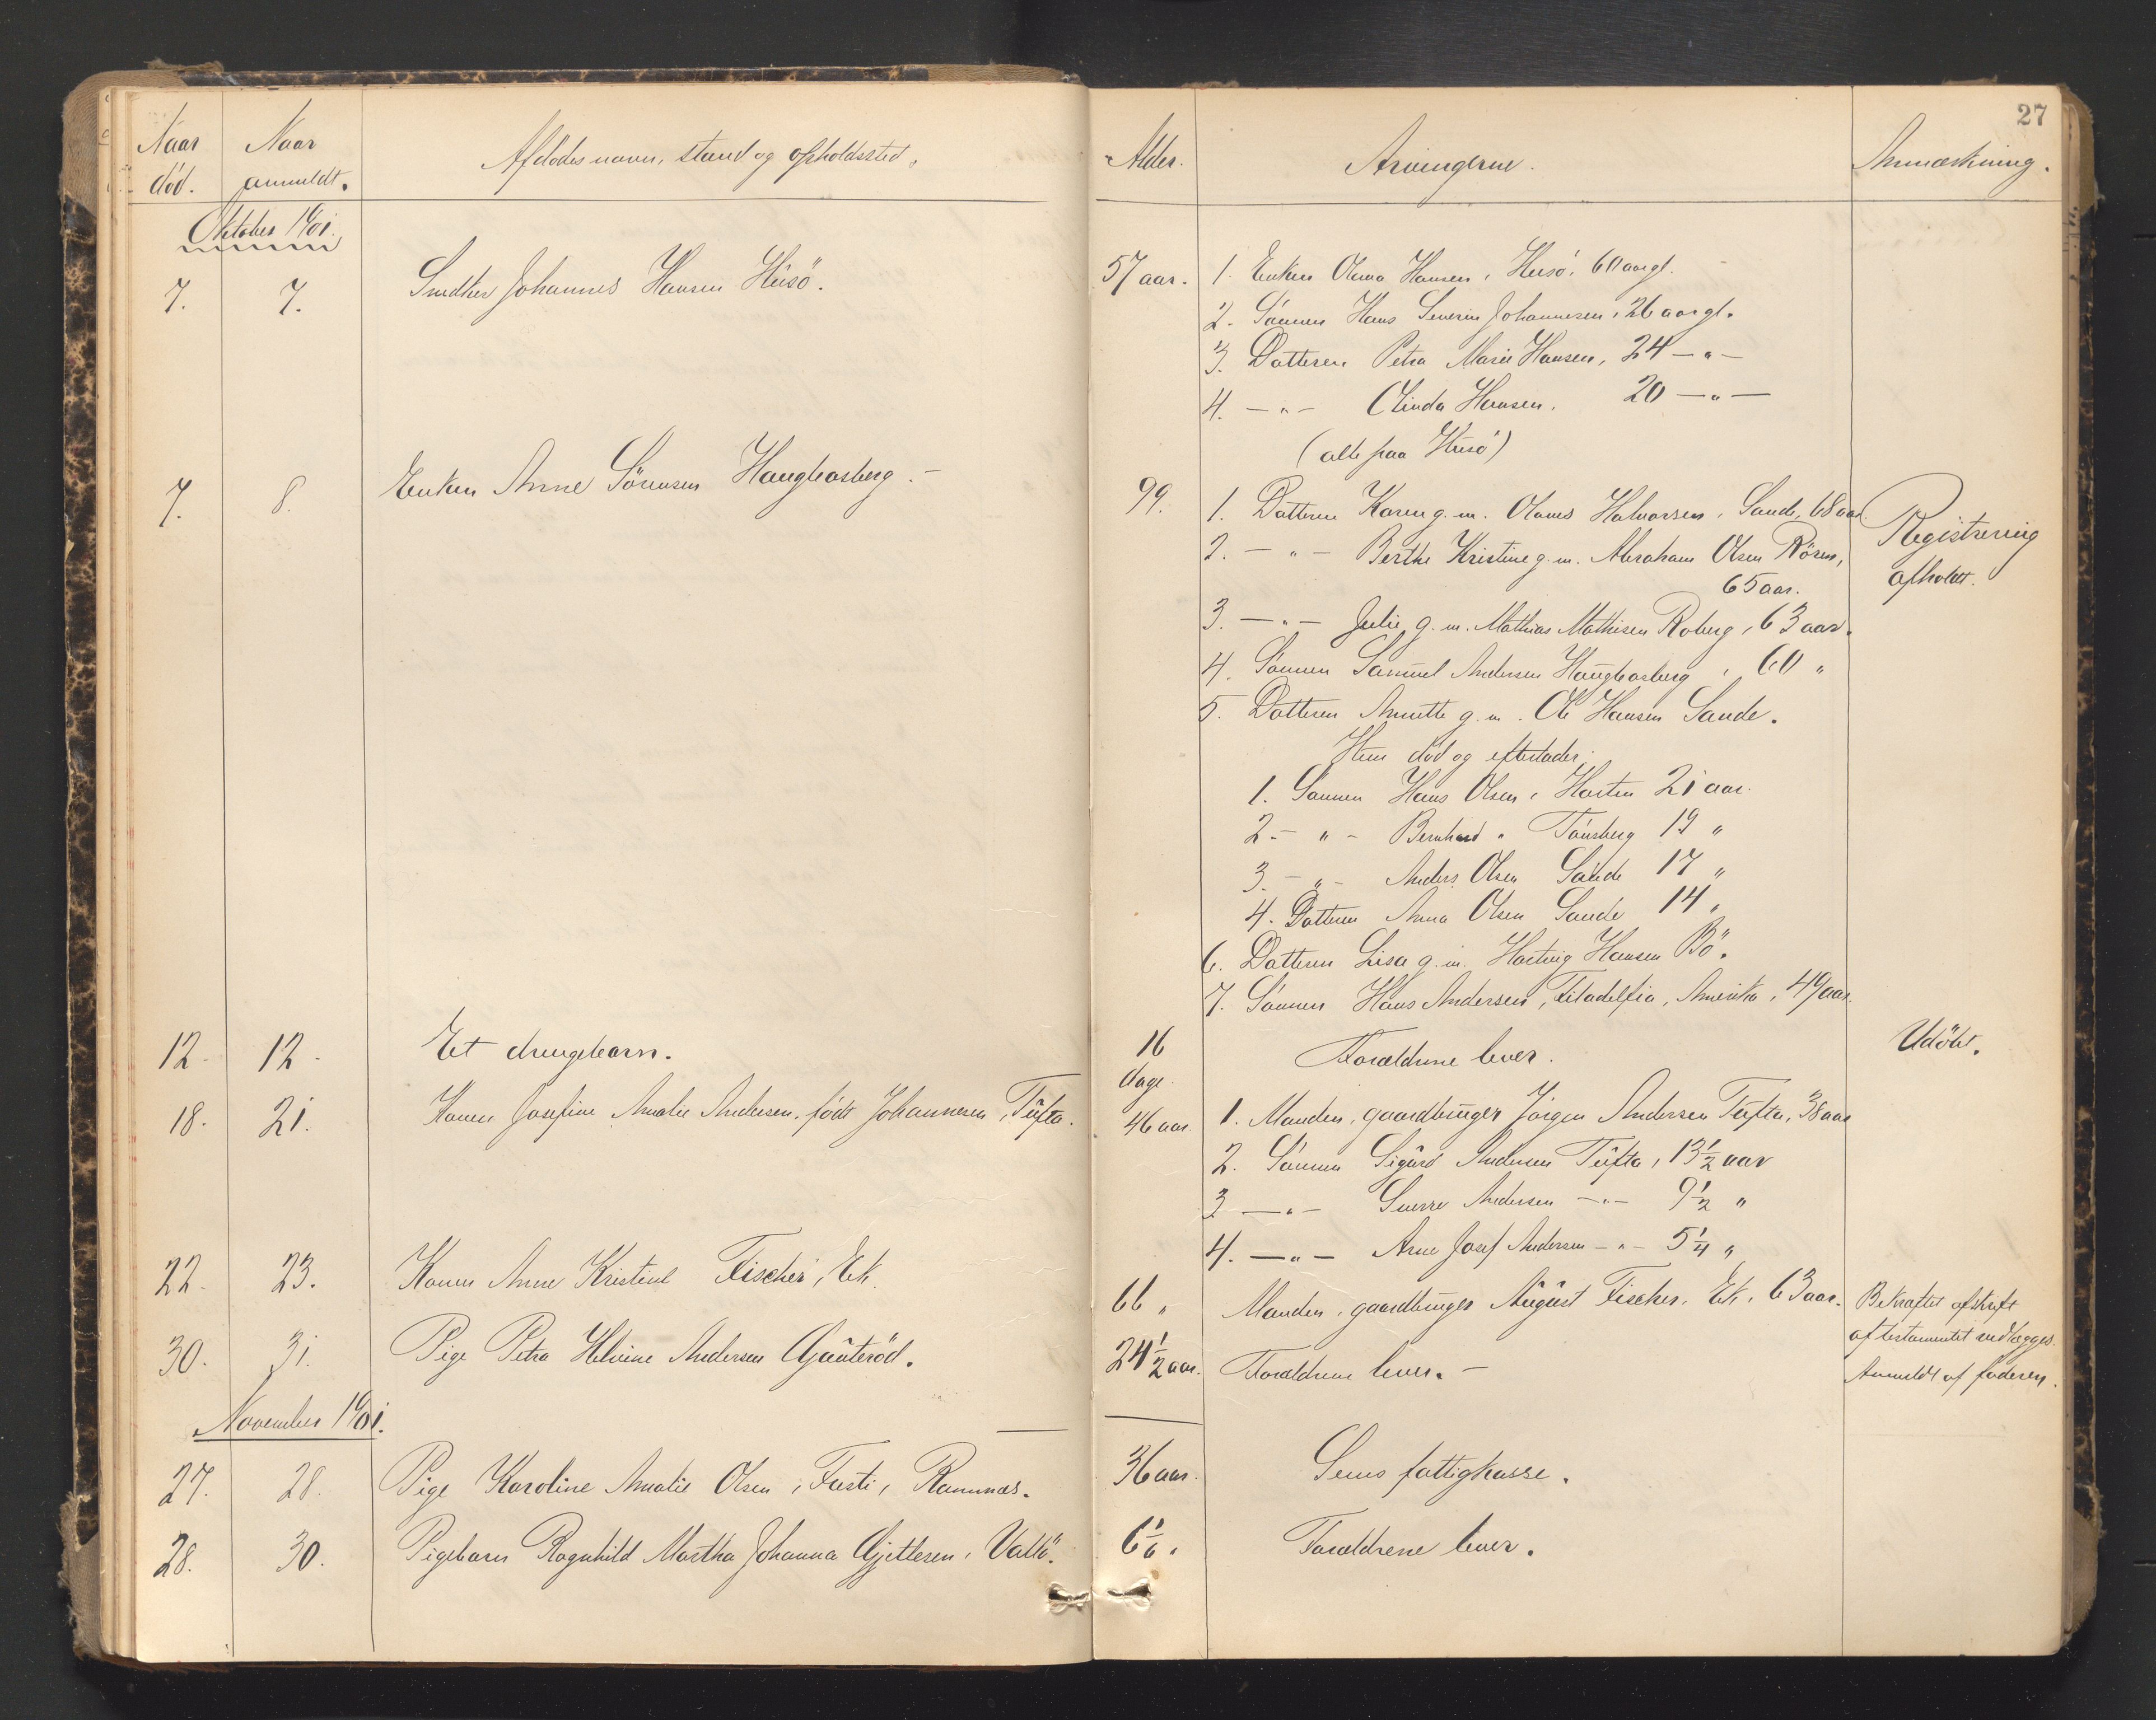 27
Naar død. Naar anmeldt. Afdødes navn, stand og opholdssted. Alder. Arvingerne. Anmærkning.
Oktober 1901.
7. 7. Johannes Hansen Husö. 57 aar. 1. Enken Hansen, Husö, 60 aargl.
2. Sønnen Hans Severin Johannesen, 26 aargl.
3. Datteren Petra Marie Hansen, 24 — " —
4. — " — Olinda Hansen. 20 — " —
(alle paa Husö)
7. 8. Enken Anne Sörensen Haugbasberg. — 99. 1. Datteren Karen g. m. Olaves Halvorsen, Sande, 68 aar. Registrering
2. — " — Berthe Kristine g. m. Abraham Olsen Rösen, afholdt.
65 aar.
3. — " — Julie g. m. Mathias Mathisen Roberg, 63 aar.
4. Sønnen Samuel Andersen Haugbasberg, 60 "
5. Datteren Annette g. m. Ole Hansen Sande.
Hun død og efterlader:
1. Sønnen Hans Olsen, Horten 21 aar.
2 - " - Bernhard " Tønsberg 19 "
3. - " - Anders Olsen Sande 17 "
4. Datteren Anna Olsen Sande 14 "
6. Datteren Lisa g. m. Hartvig Hansen Bö.
7. Sønnen Hans Andersen, Filadelfia, Amerika, 49 aar.
12. 12. Et drengebarn. 16 dage. Forældrene lever. Udöbt.
18. 21. Konen Josefine Amalie Andersen, født Johannesen, Tufta. 46 aar. 1. Manden, gaardbruger Jörgen Andersen Tufta, 38 aar
2. Sønnen Sigurd Andersen Tufta, 13 1/2 aar
3 — " — Sverre Andersen — " — 9 1/2 "
4. — " — Arne Josef Andersen - " - 5 1/4 "
22. 23. Konen Anne Kristine Fischer, Ek. 66 " Manden, gaardbruger August Fischer, Ek, 63 aar. Bekræftet afskrift
af testamentet vedlægges.
30. 31. Pige Petra Helvine Andersen Gauteröd. 24 1/2 aar. Forældrene lever. — Anmeldt af faderen.
November 1901.
27. 28. Pige Karoline Amalie Olsen, Fæsti, Ramnæs. 36 aar. Sems fattigkasse.
28. 30. Pigebarn Ragnhild Martha Johanna Gjettesen, Vallö. 6 1/6 " Forældrene lever.